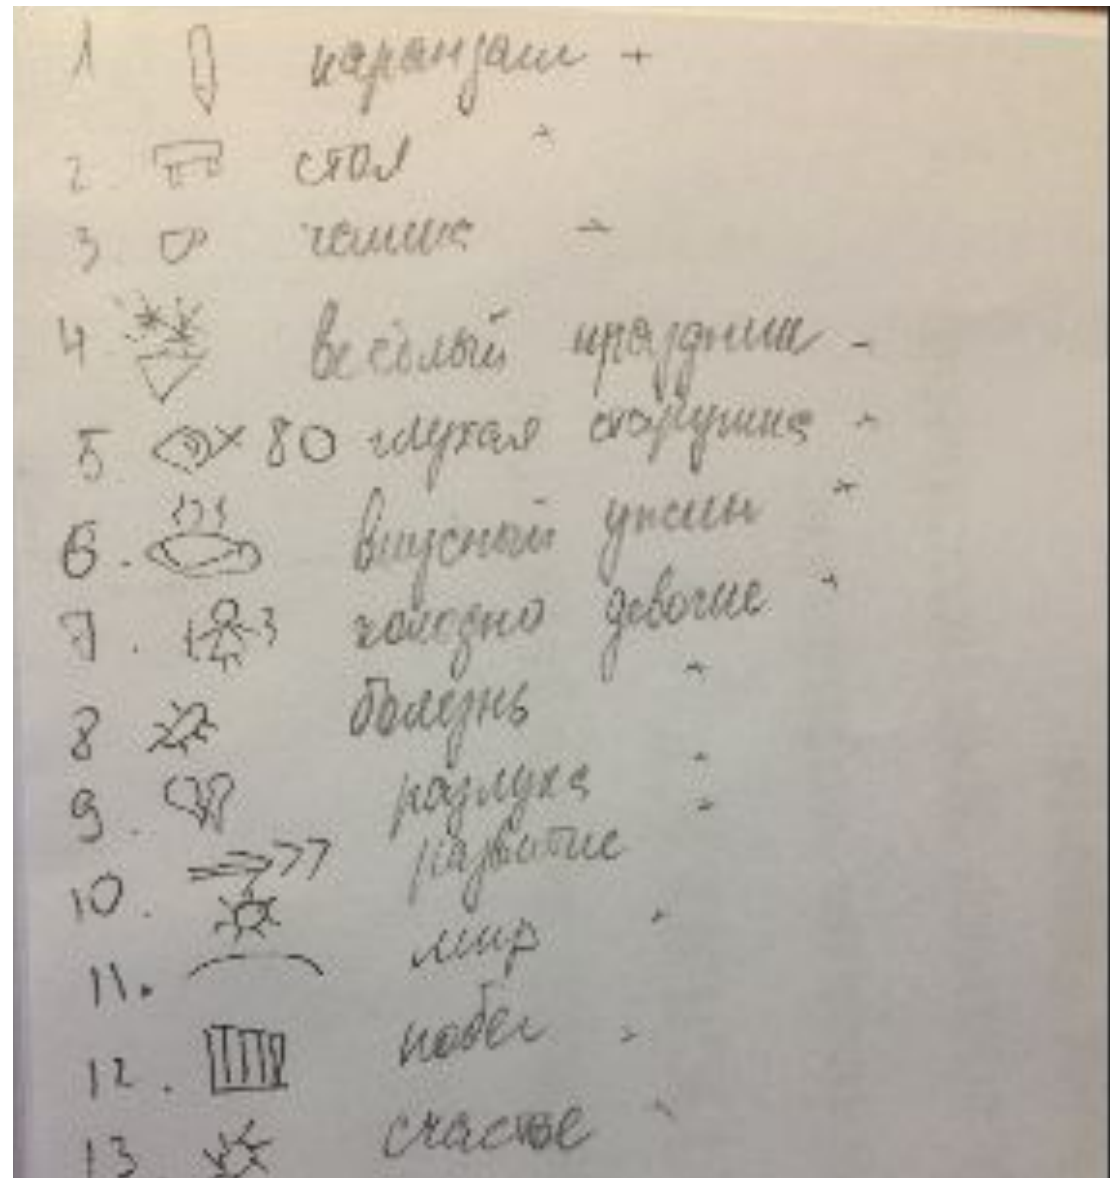 1 карандаш +
2. стол
3 чашка
4 весёлый праздник -
5 80 глухая старушка
6. вкусный ужин
7. холодно девочке
8 болезнь
9. разлука
10. развитие
11. мир
12. побег
13 счастье